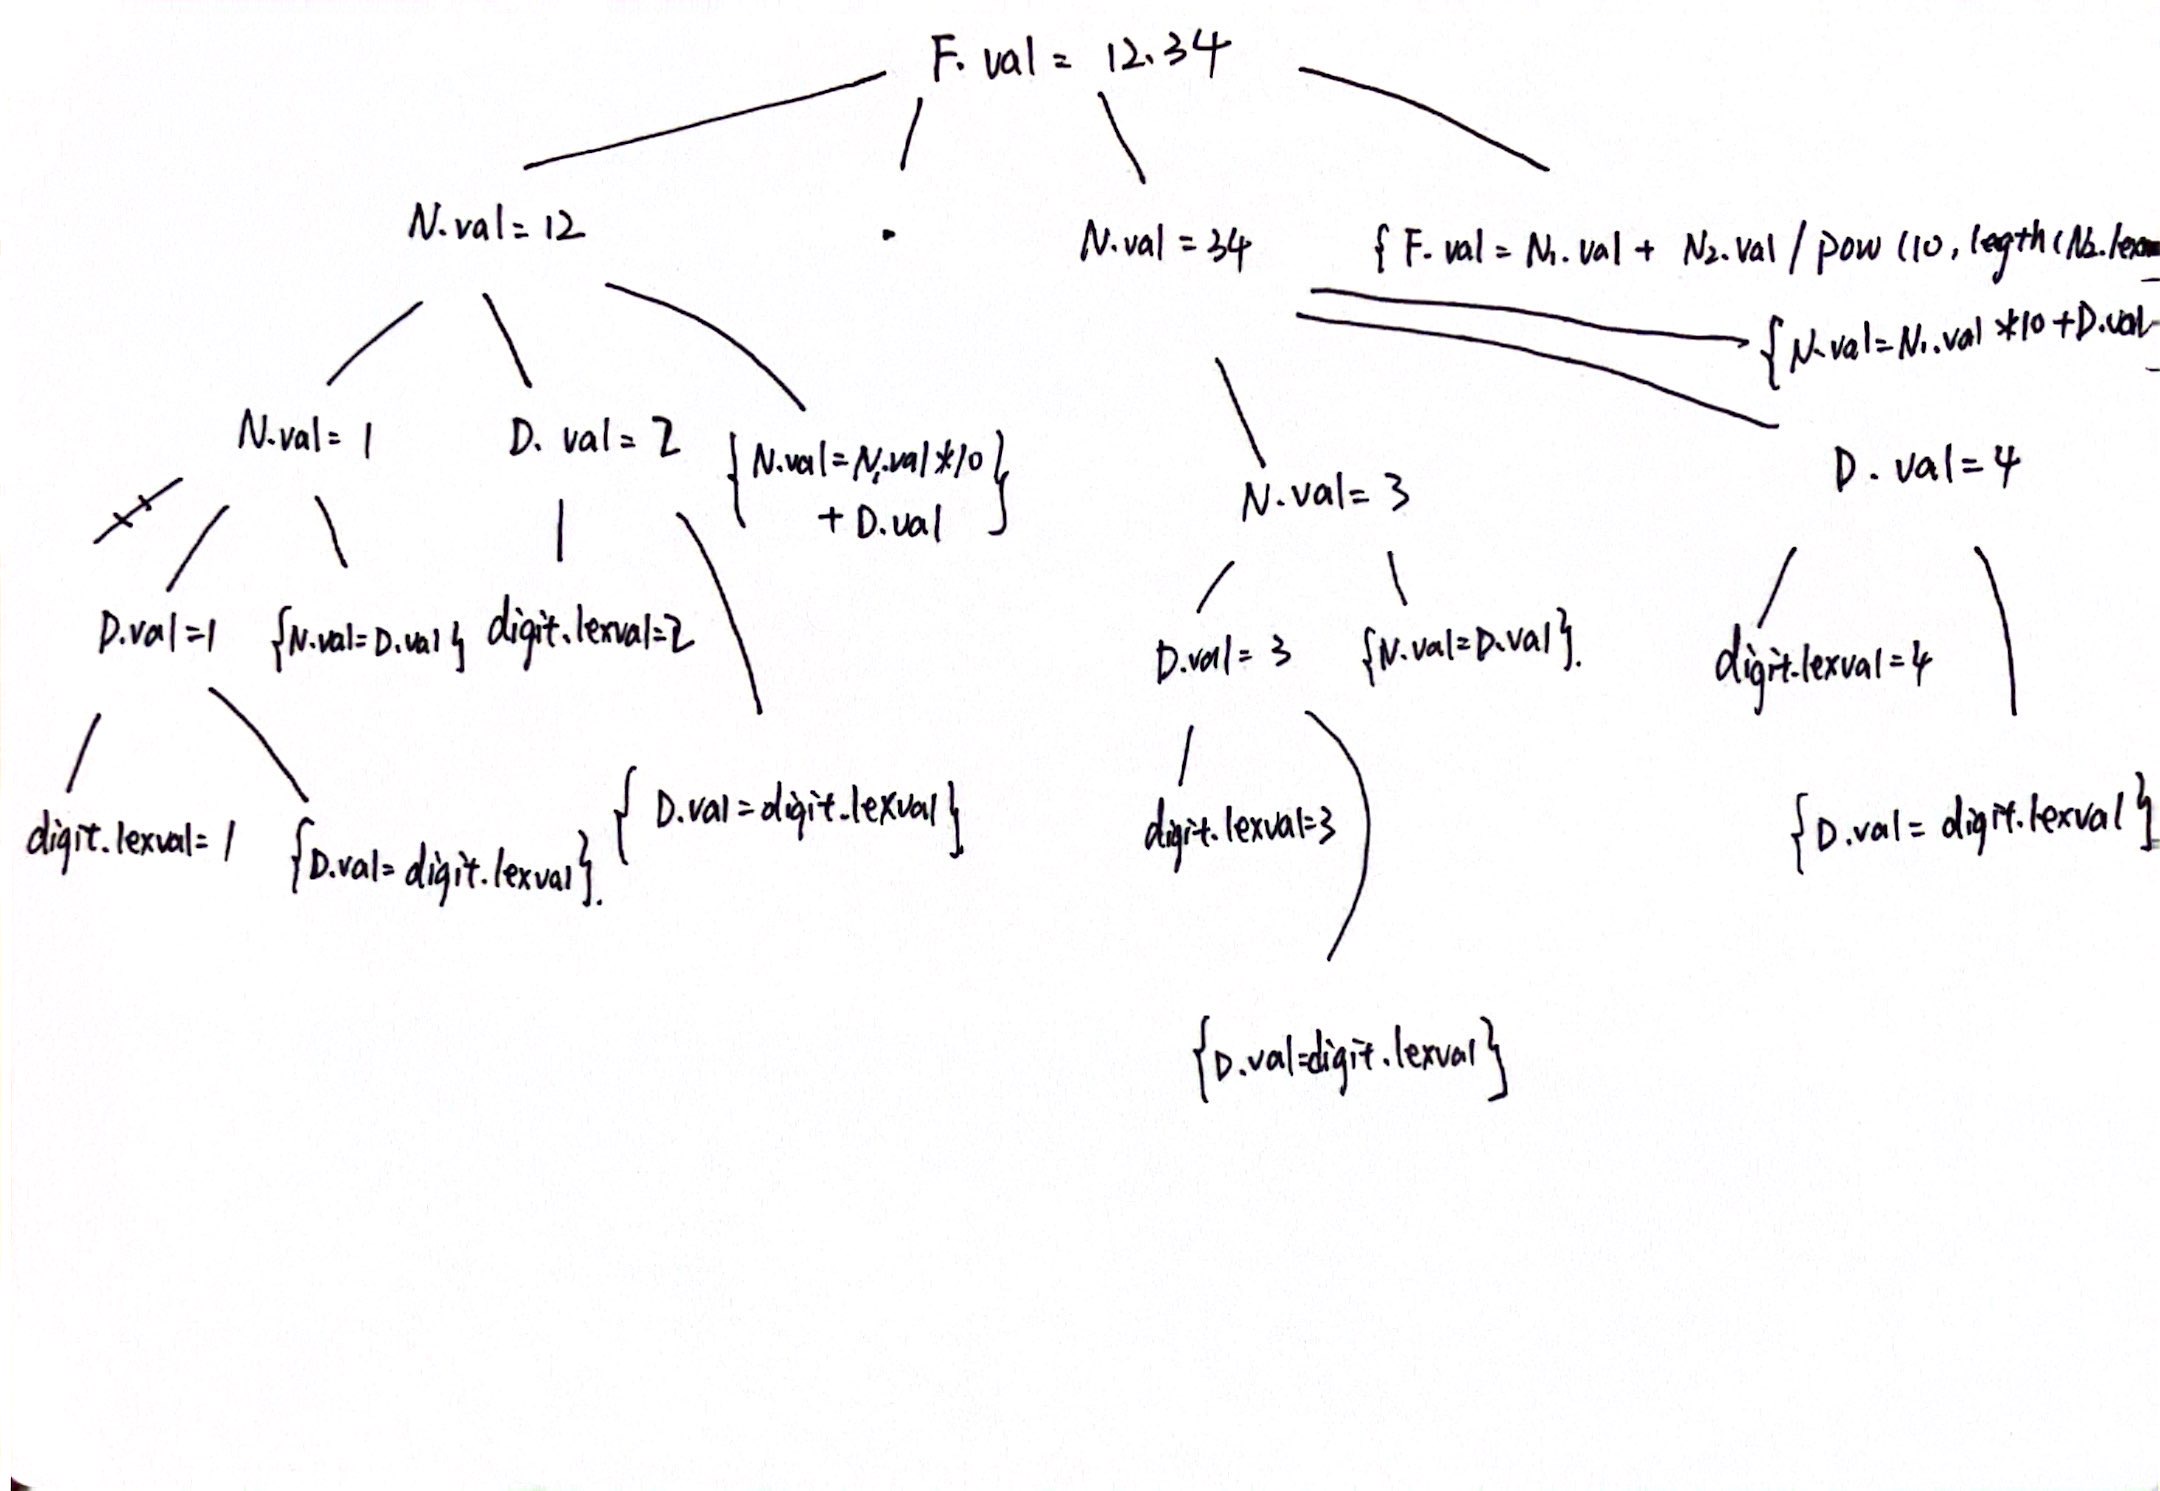 F. val = 12.34
N.val = 12
.
N.val = 34
{ F. val = N₁. val + N₂. val / pow (10, legth (N₂.
{ N.val = N₁.val *10 + D.val
N.val = 1
D. val = 2
{ N.val = N₁.val *10
+ D.val }
N.val = 3
D. val = 4
D.val = 1
{N.val = D.val}
digit.lexval = 2
D.val = 3
{N.val = D.val}.
digit.lexval = 4
digit.lexval = 1
{D.val = digit.lexval}.
{ D.val = digit.lexval}
digit.lexval = 3
{D.val = digit.lexval}
{D.val = digit.lexval}